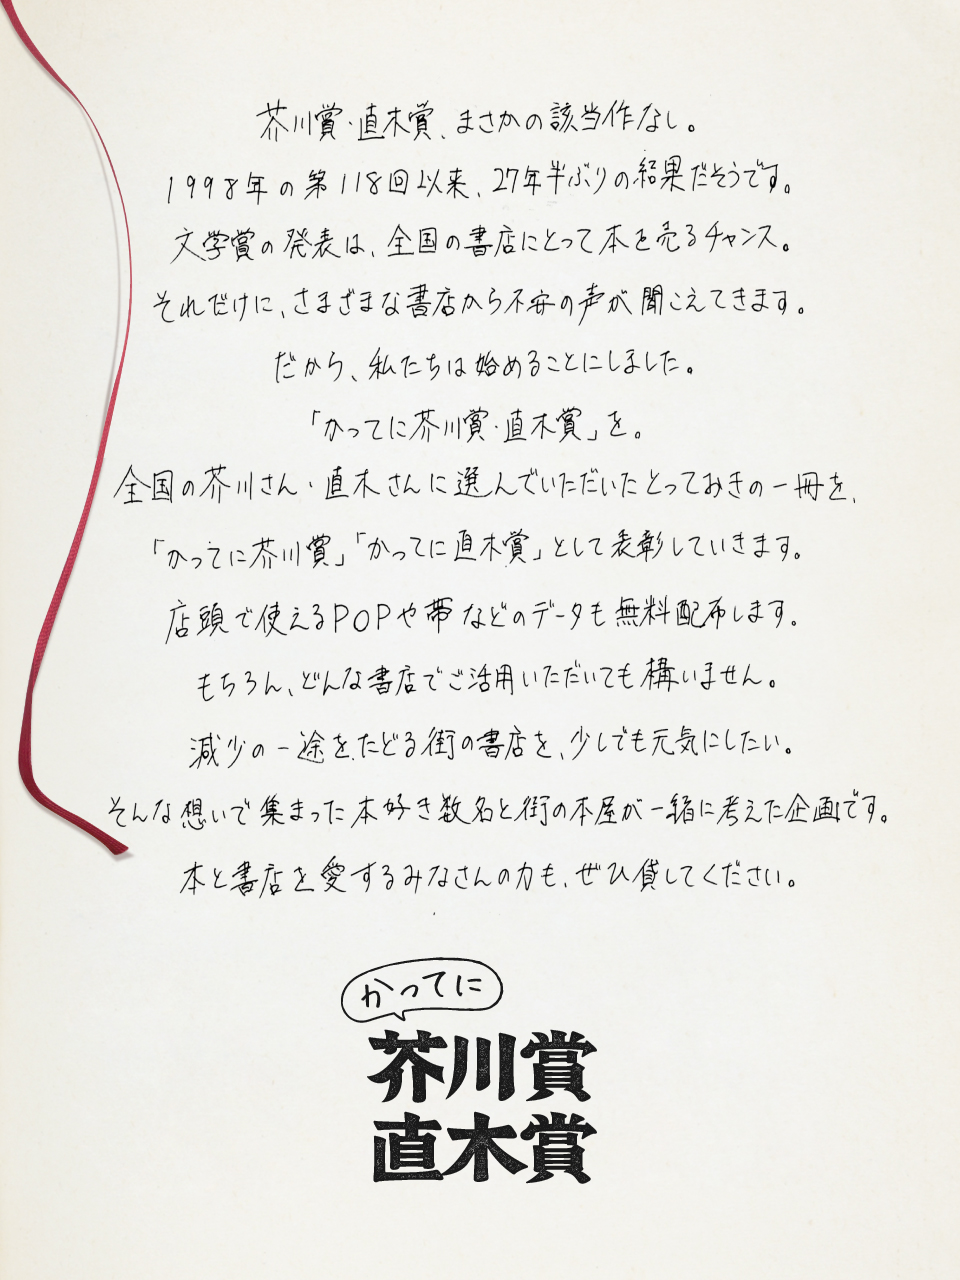 芥川賞・直木賞、まさかの該当作なし。
1998年の第118回以来、27年半ぶりの結果だそうです。
文学賞の発表は、全国の書店にとって本を売るチャンス。
それだけに、さまざまな書店から不安の声が聞こえてきます。
だから、私たちは始めることにしました。
「かってに芥川賞・直木賞」を。
全国の芥川さん・直木さんに選んでいただいたとっておきの一冊を、
「かってに芥川賞」「かってに直木賞」として表彰していきます。
店頭で使えるPOPや帯などのデータも無料配布します。
もちろん、どんな書店でご活用いただいても構いません。
減少の一途をたどる街の書店を、少しでも元気にしたい。
そんな想いで集まった本好き数名と街の本屋が一緒に考えた企画です。
本と書店を愛するみなさんの力も、ぜひ貸してください。
かってに
芥川賞
直木賞